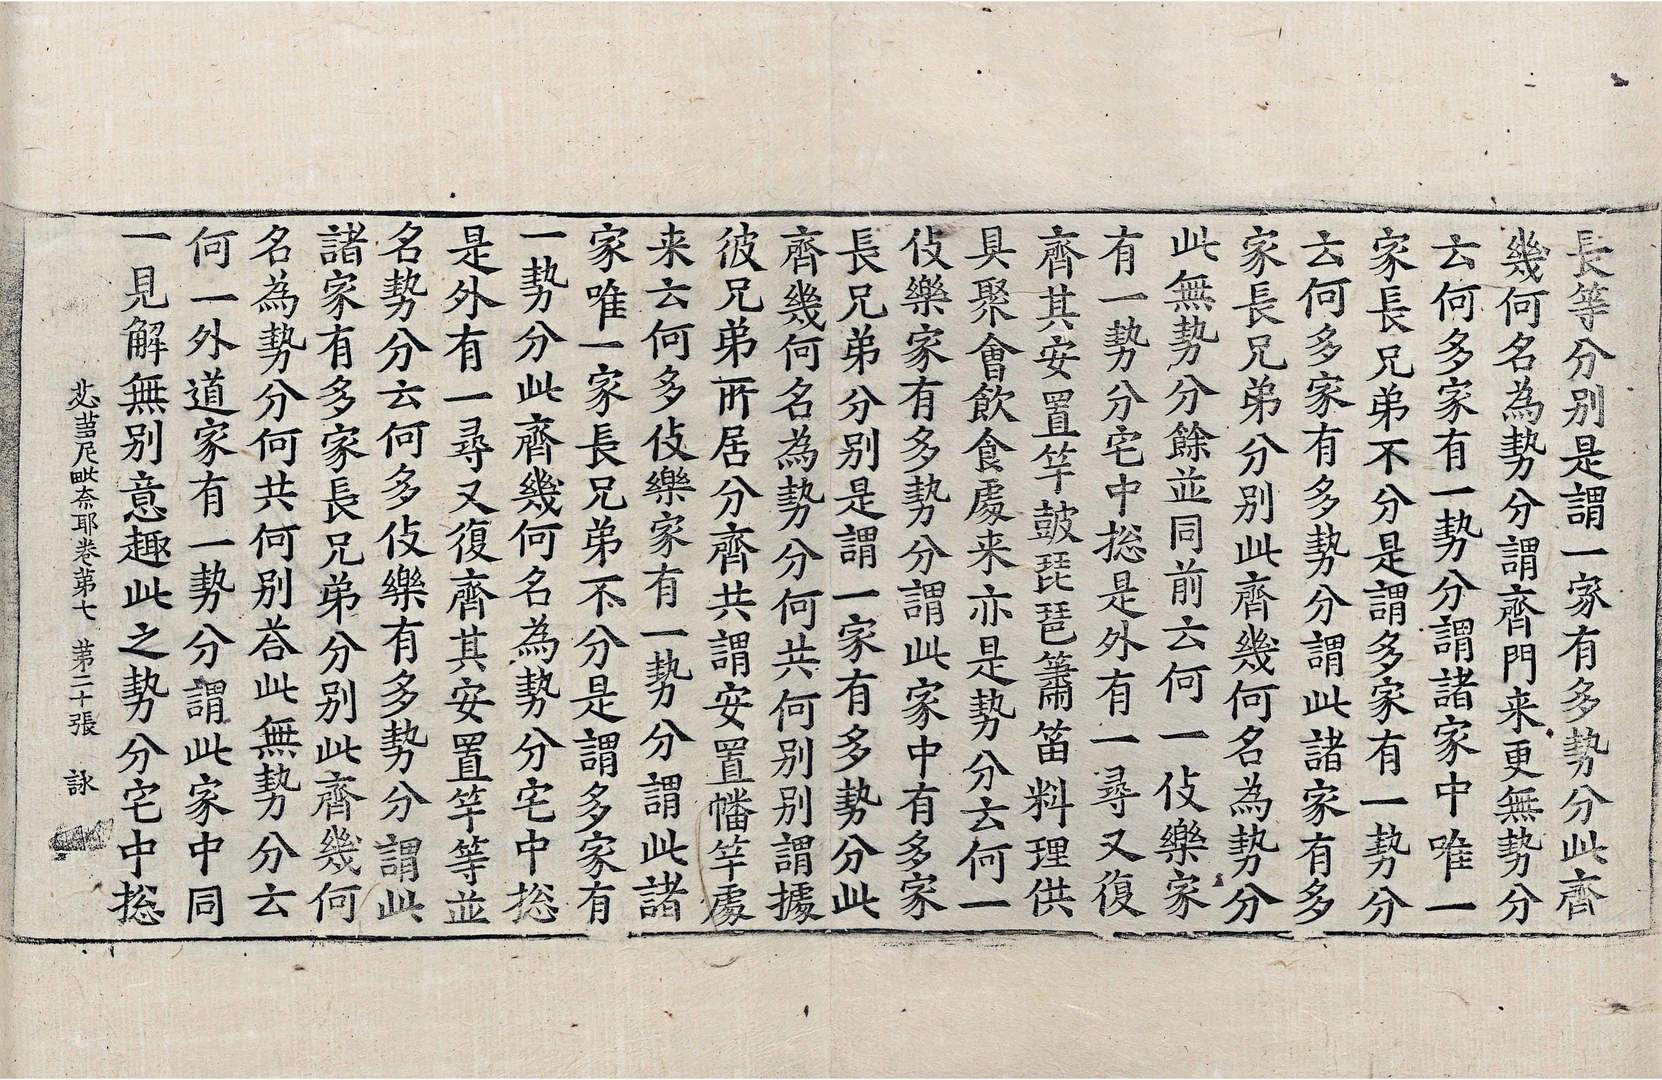 長等分別是謂一家有多勢分此齊
幾何名為勢分謂齊門来更無勢分
云何多家有一勢分謂諸家中唯一
家長兄弟不分是謂多家有一勢分
云何多家有多勢分謂此諸家有多
家長兄弟分別此齊幾何名為勢分
此無勢分餘並同前云何一伎樂家
有一勢分宅中捴是外有一尋又復
齊其安置竿皷琵琶簫笛料理供
具聚會飲食處来亦是勢分云何一
伎樂家有多勢分謂此家中有多家
長兄弟分別是謂一家有多勢分此
齊幾何名為勢分何共何別別謂據
彼兄弟所居分齊共謂安置幡竿處
来云何多伎樂家有一勢分謂此諸
家唯一家長兄弟不分是謂多家有
一勢分此齊幾何名為勢分宅中捴
是外有一尋又復齊其安置竿等並
名勢分云何多伎樂有多勢分謂此
諸家有多家長兄弟分別此齊幾何
名為勢分何共何別荅此無勢分云
何一外道家有一勢分謂此家中同
一見解無別意趣此之勢分宅中捴
苾蒭尼毗奈耶卷第七 第二十張 詠